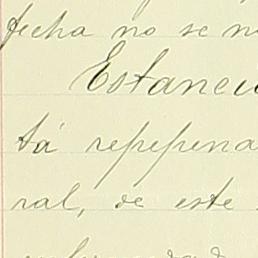 fecha no se n
Estancia
tá repepena
ral, de este